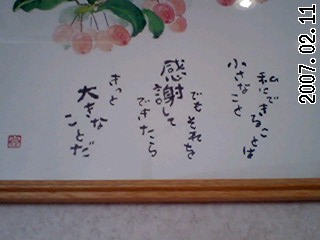 私にできることは
小さなこと
でもそれを
感謝して
できたら
きっと
大きな
ことだ
2007.02.11